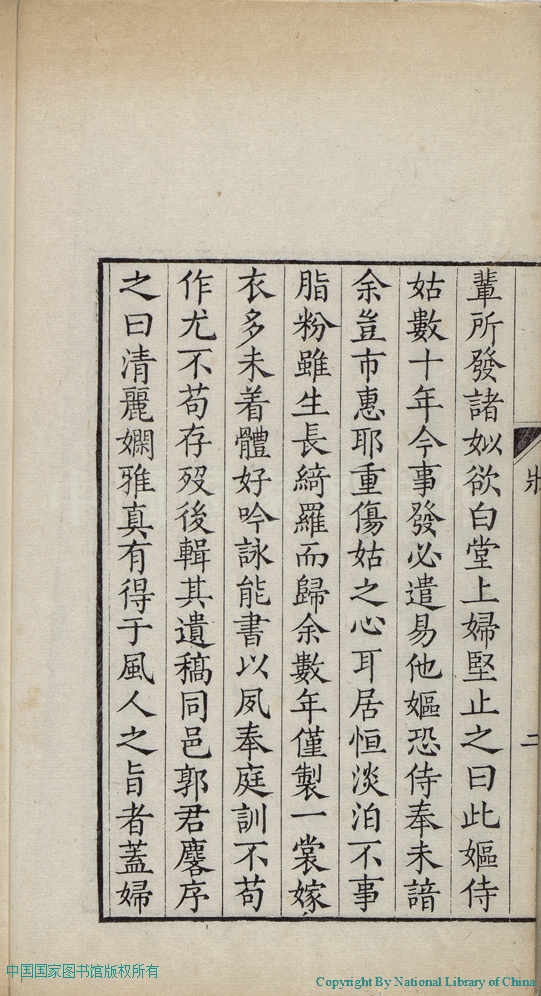 狀
二
輩所發諸姒欲白堂上婦堅止之曰此嫗侍
姑數十年今事發必遣易他嫗恐侍奉未諳
余豈市惠耶重傷姑之心耳居恒淡泊不事
脂粉雖生長綺羅而歸余數年僅製一裳嫁
衣多未着體好吟詠能書以夙奉庭訓不苟
作尤不苟存歿後輯其遺稿同邑郭君麐序
之曰清麗嫻雅真有得于風人之旨者蓋婦
中国国家图书馆版权所有
Copyright By National Library of China